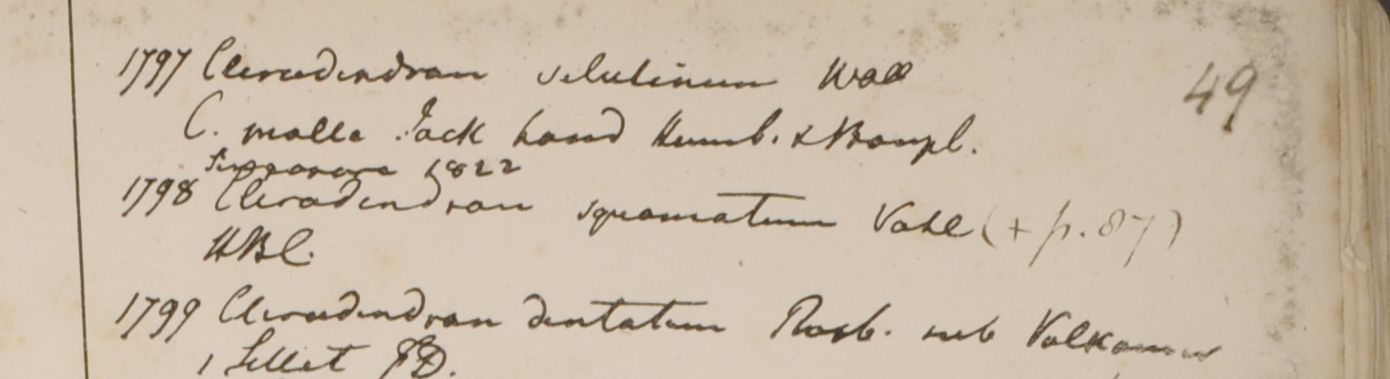 1797 Clerodendron velutinum Wall
49
C. molle Jack haud Humb. & Bonpl.
Singapore 1822
1798 Clerodendron squamatum Vahl (+ p. 87)
HBC.
1799 Clerodendron dentatum Roxb. sub Volkameria
1 Sillet FD.